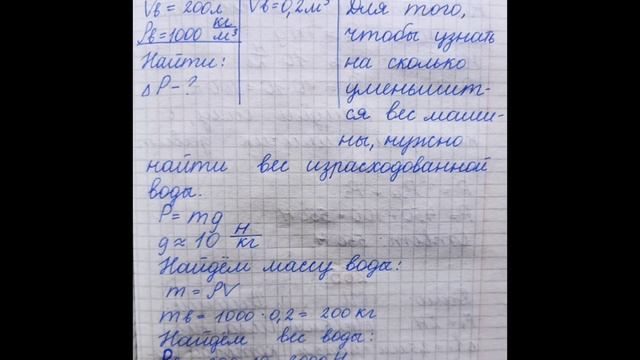 Vв = 200л
Vв = 0,2м³
Для того,
ρв = 1000 кг/м³
чтобы узнать
Найти:
на сколько
ΔP - ?
уменьшит-
ся вес маши-
ны, нужно
найти вес израсходованной
воды.
P = mg
g ≈ 10 Н/кг
Найдём массу воды:
m = ρV
mв = 1000 · 0,2 = 200 кг
Найдём вес воды: